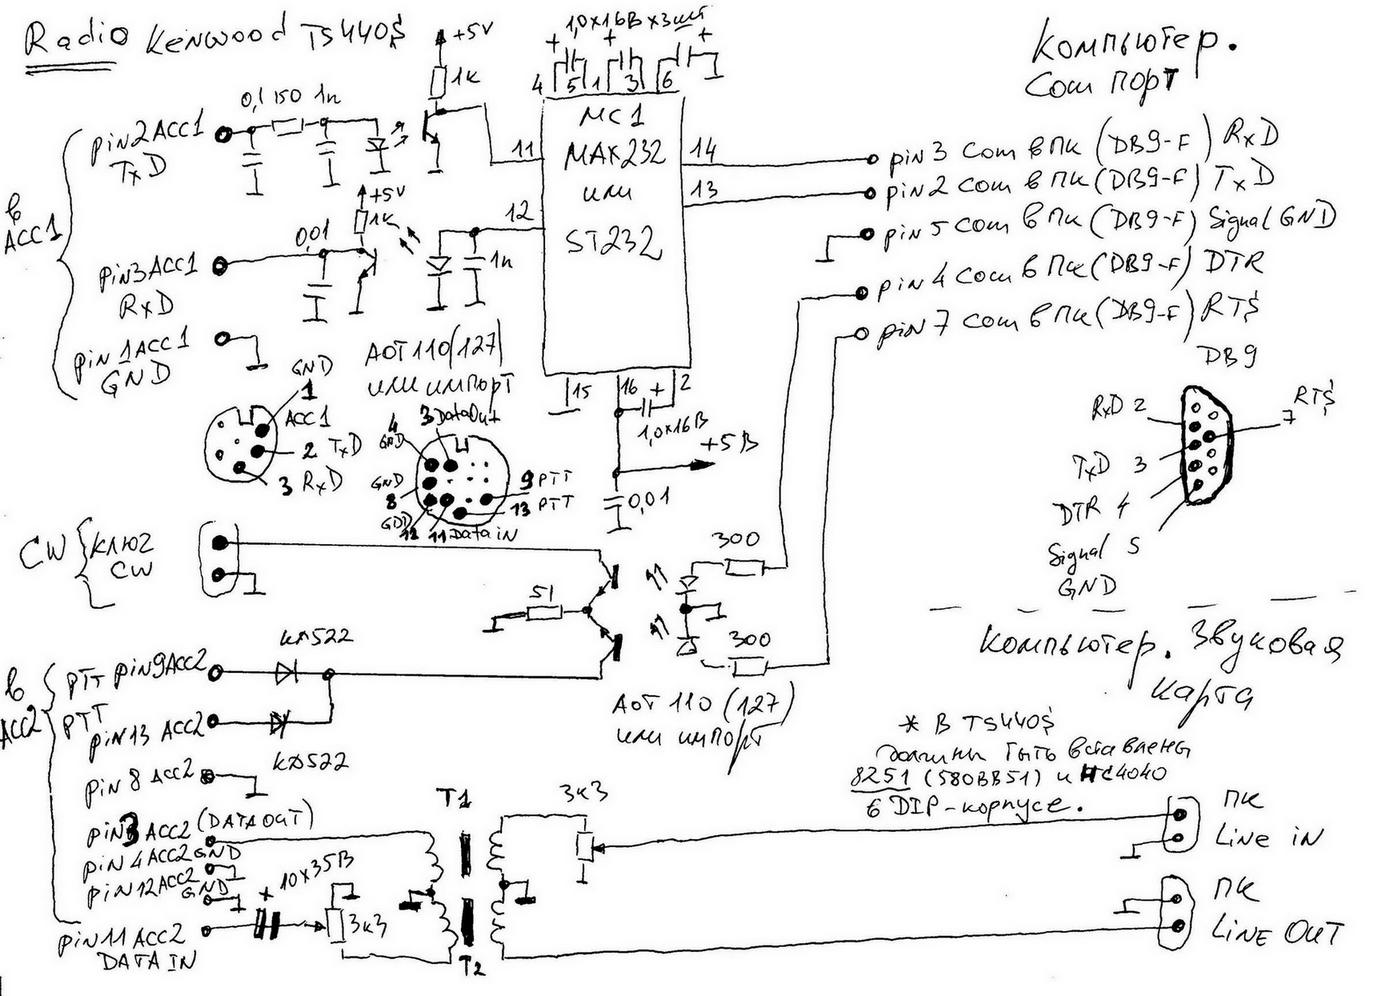 Radio Kenwood TS440S
+5V
1,0x16В x 3шт
Компьютер.
Com порт
0,1 150 1n
1K
4 5 1 3 6
MC1
MAX232
или
ST232
pin2ACC1
TxD
11
14
13
12
pin 3 Com в ПК (DB9-F) RxD
pin 2 Com в ПК (DB9-F) TxD
pin 5 Com в ПК (DB9-F) Signal GND
pin 4 Com в ПК (DB9-F) DTR
pin 7 Com в ПК (DB9-F) RTS
в
ACC1
+5V
1K
0,01
1n
pin3ACC1
RxD
pin 1ACC1
GND
АОТ 110 (127)
или импорт
15 16 2
1,0x16В
+5В
0,01
GND
1
ACC1
2 TxD
3 RxD
3 DataOut
4
GND
GND
8
9 PTT
13 PTT
GND
12 11 Data iN
DB9
RxD 2
7 RTS
TxD 3
DTR 4
Signal 5
GND
CW
ключ
CW
51
300
300
Компьютер. Звуковая
карта
КД522
в
ACC2
PTT pin9ACC2
PTT
pin13 ACC2
КД522
АОТ 110 (127)
или импорт
* В TS440S
должны быть вставлены
8251 (580ВВ51) и HC4040
в DIP-корпусе.
pin 8 ACC2
pin3 ACC2 (DATA OUT)
pin 4 ACC2 GND
pin12ACC2
GND
10x35В
3к3
pin11 ACC2
DATA IN
T1
T2
3к3
ПК
Line iN
ПК
LiNE OUT